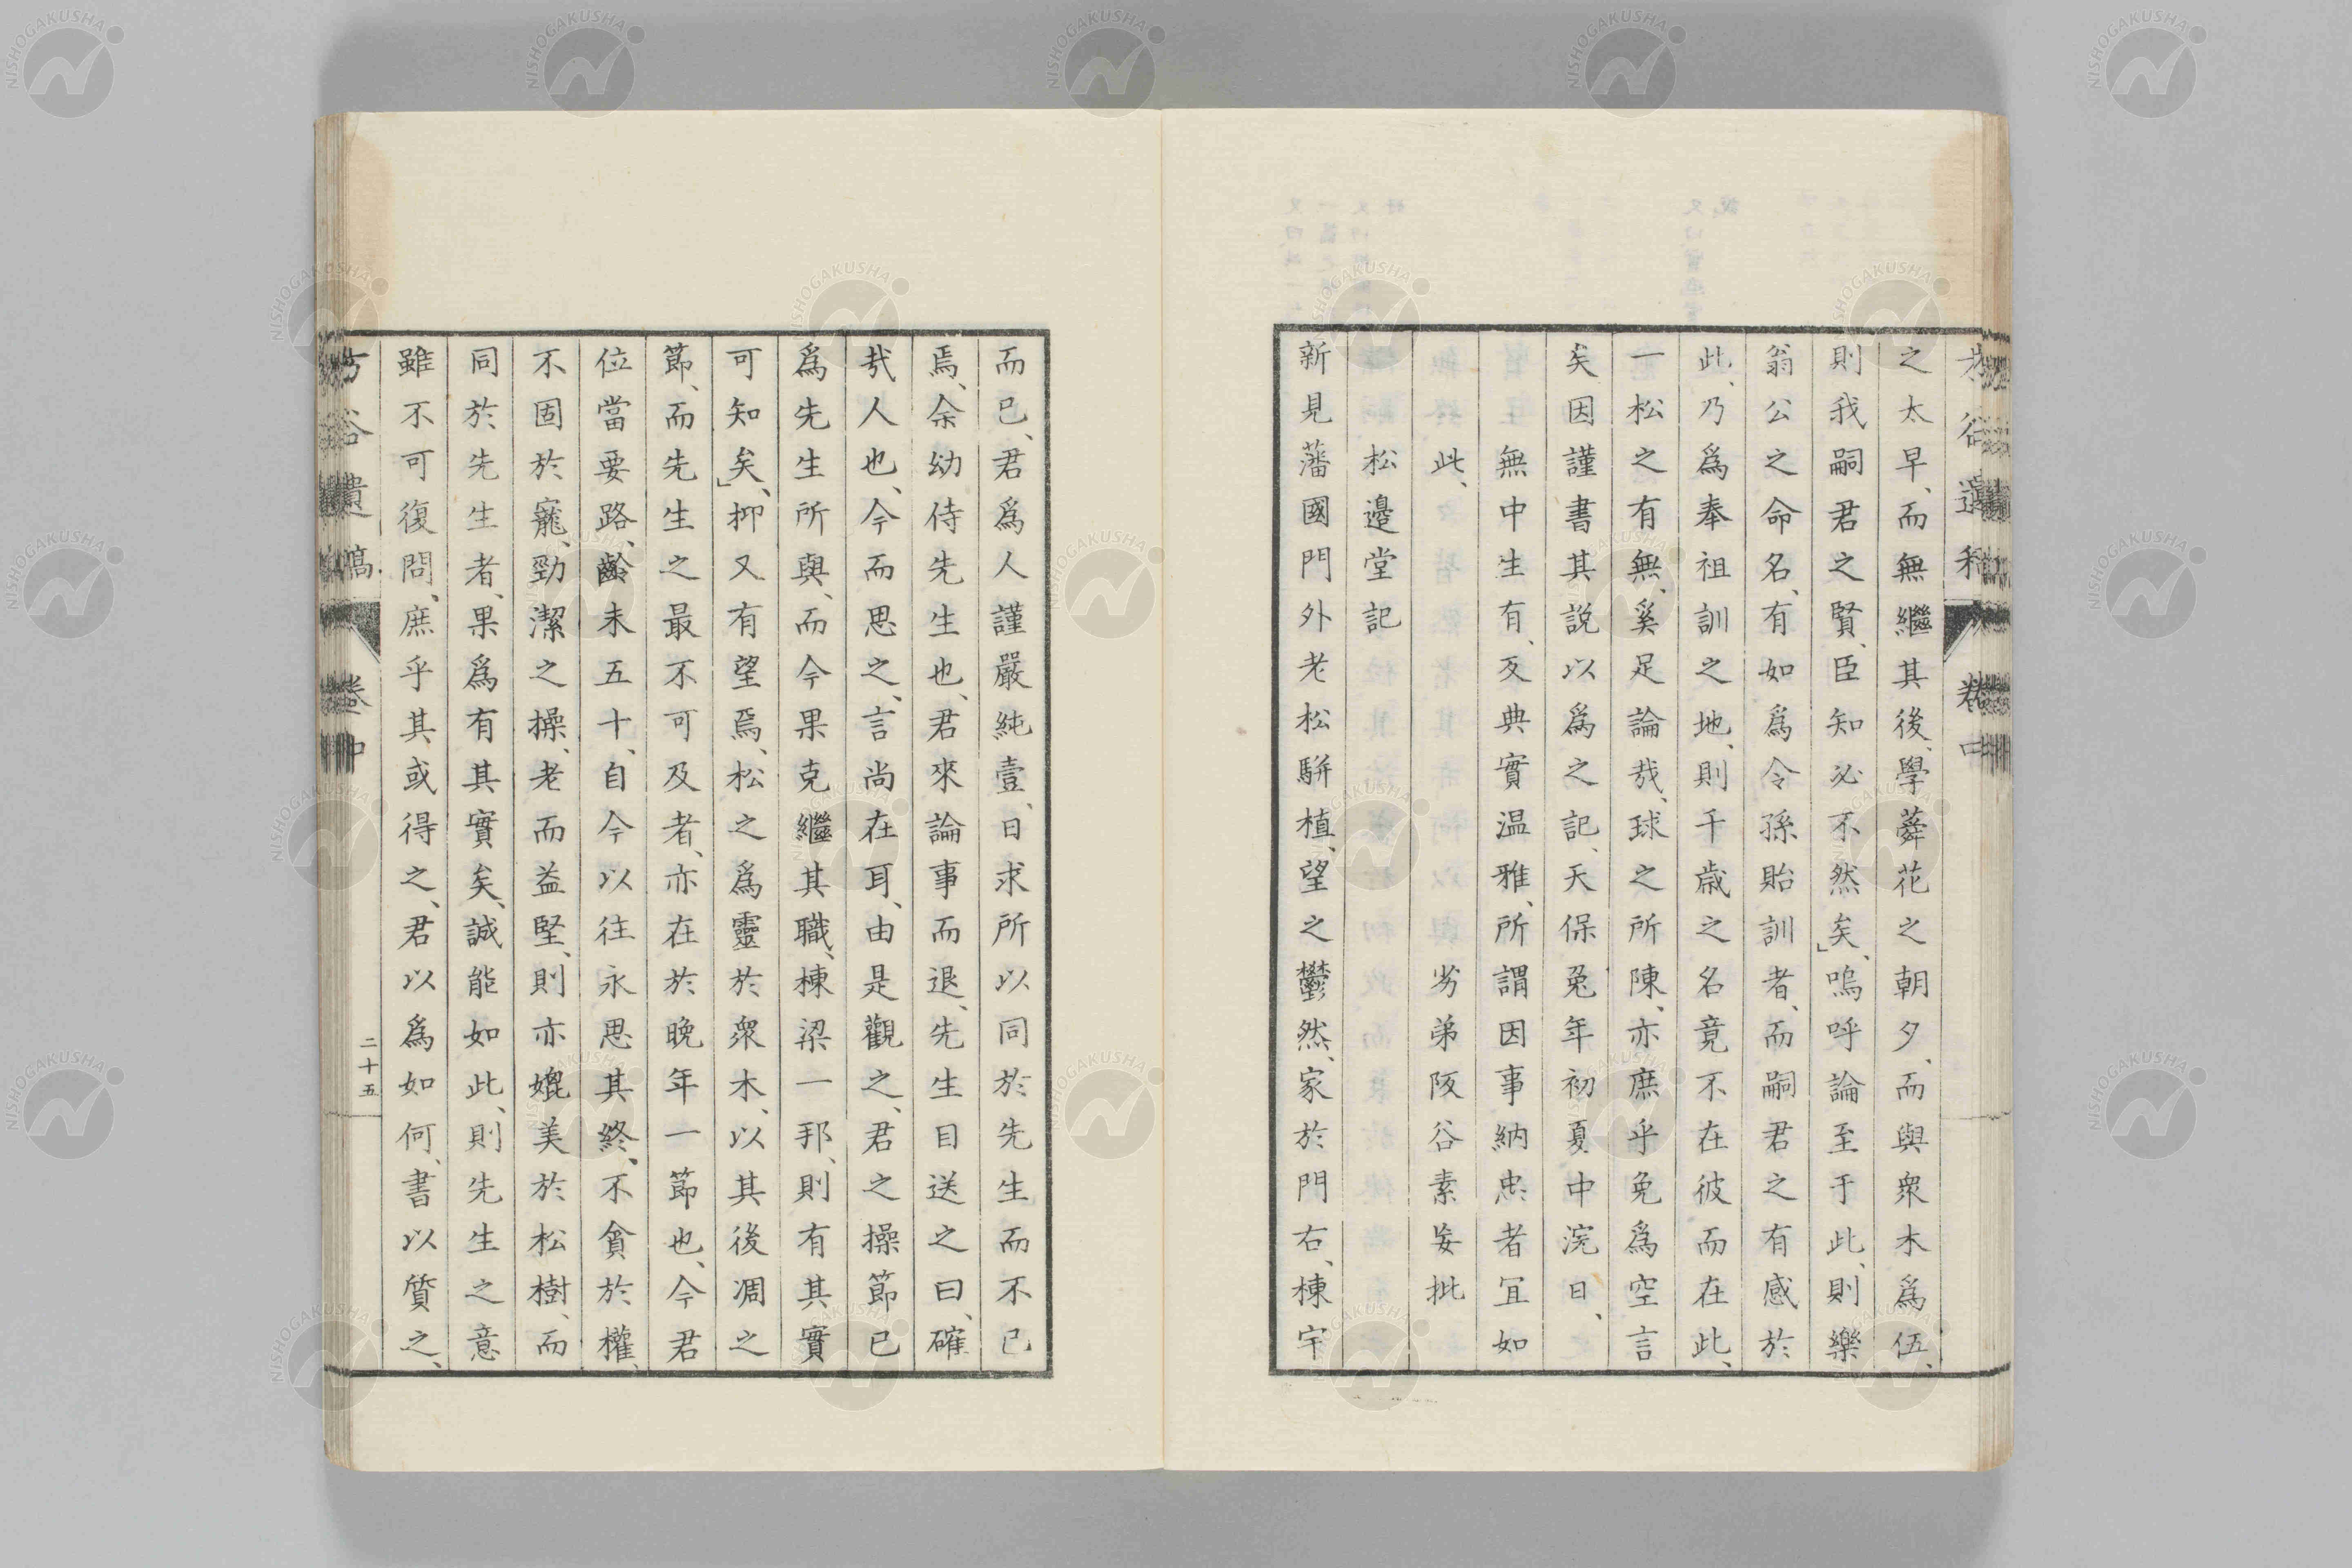 之太早、而無繼其後、學蕣花之朝夕、而與衆木爲伍、
則我嗣君之賢、臣知必不然矣」、嗚呼論至于此、則樂
翁公之命名、有如爲令孫貽訓者、而嗣君之有感於
此、乃爲奉祖訓之地、則千歳之名竟不在彼而在此、
一松之有無、奚足論哉、球之所陳、亦庶乎免爲空言
矣因謹書其説以爲之記、天保兎年初夏中浣日、
無中生有、反典實温雅、所謂因事納忠者冝如
此、 劣弟阪谷素妄批
松邉堂記
新見藩國門外老松駢植、望之鬱然、家於門右、棟宇
而已、君爲人謹嚴純壹、日求所以同於先生而不已
焉、余幼侍先生也、君來論事而退、先生目送之曰、確
哉人也、今而思之、言尚在耳、由是觀之、君之操節已
爲先生所與、而今果克繼其職、棟梁一邦、則有其實
可知矣」、抑又有望焉、松之爲靈於衆木、以其後凋之
節、而先生之最不可及者、亦在於晩年一節也、今君
位當要路、齡未五十、自今以往永思其終、不貪於權、
不固於寵、勁潔之操、老而益堅、則亦媲美於松樹、而
同於先生者、果爲有其實矣、誠能如此、則先生之意
雖不可復問、庶乎其或得之、君以爲如何、書以質之、
谷遺稿 卷中 二十五
NISHOGAKUSHA